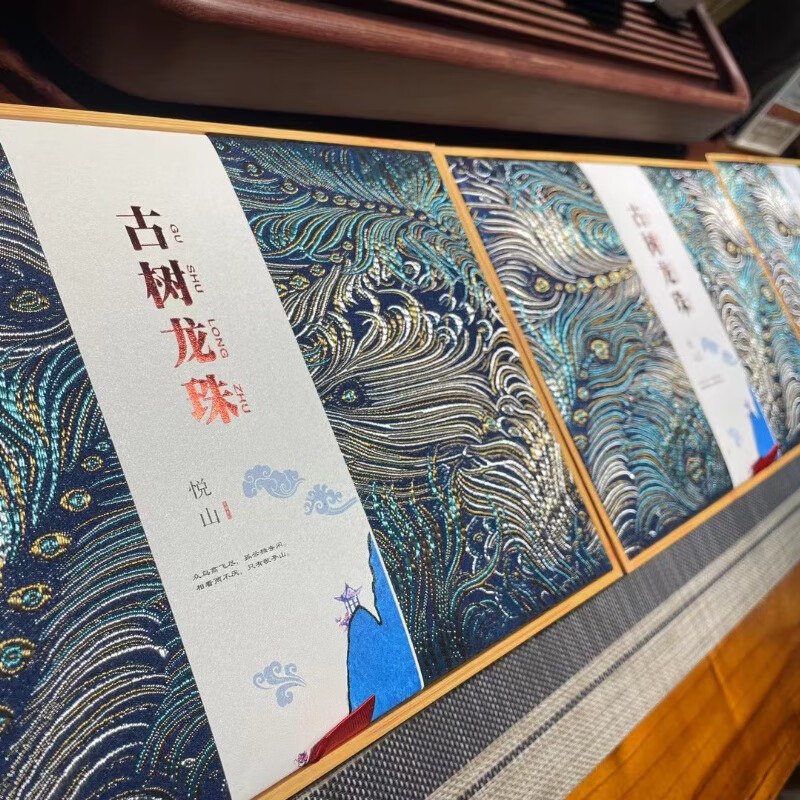 古树龙珠
GU SHU LONG ZHU
悦山
众鸟高飞尽，孤云独去闲。
相看两不厌，只有敬亭山。
古树龙珠